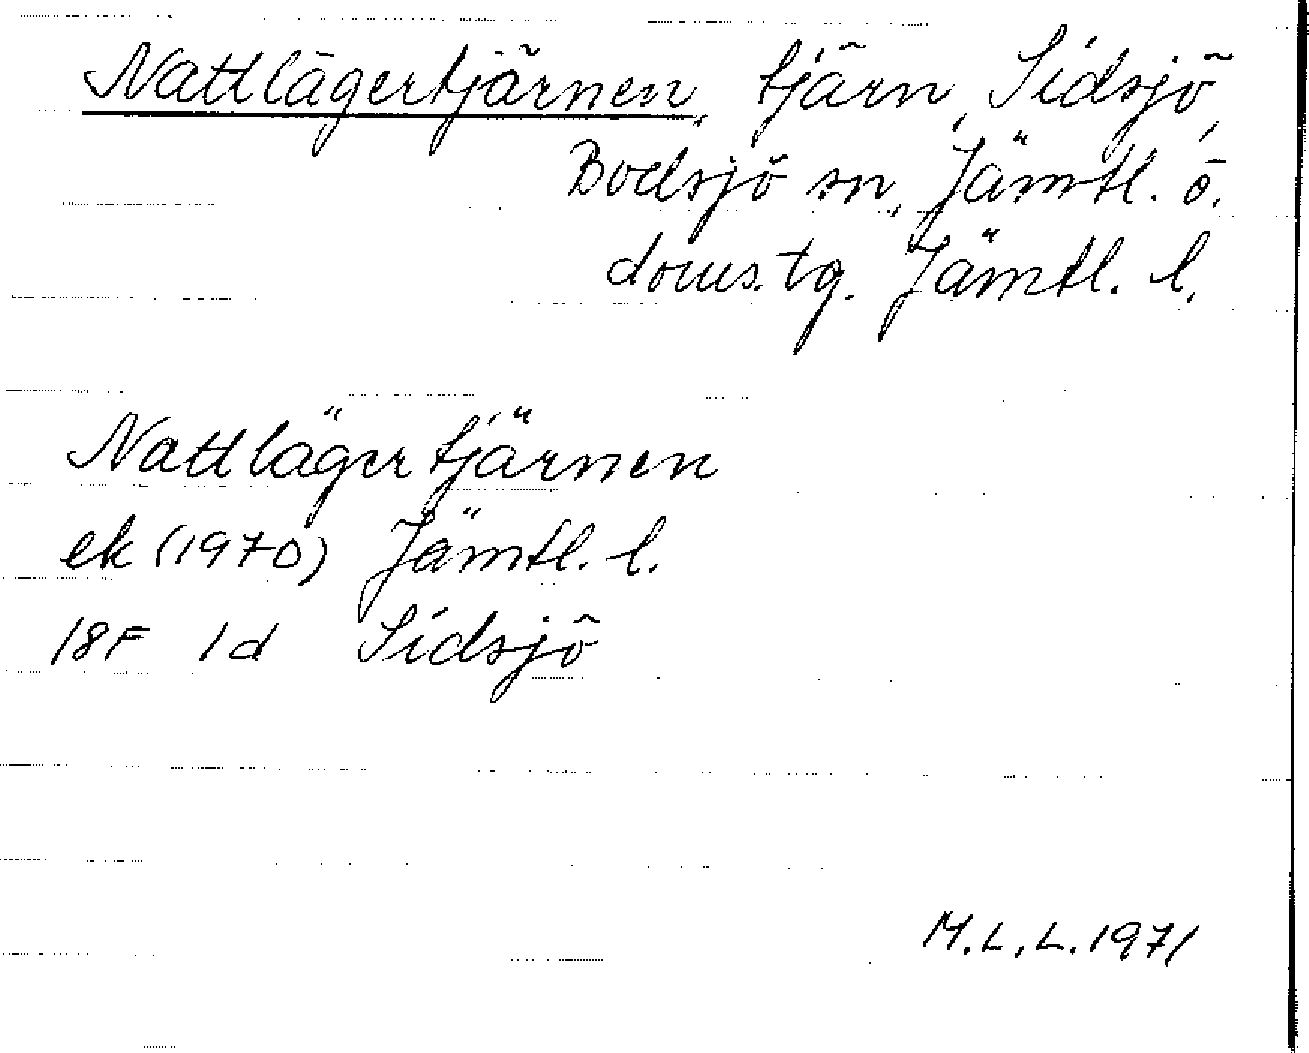 Nattlägertjärnen, tjärn, Sidsjö,
Bodsjö sn, Jämtl. ö.
doms.tg. Jämtl. l.
Nattlägertjärnen
ek (1970) Jämtl. l.
18F 1d Sidsjö
M.L.L. 1971